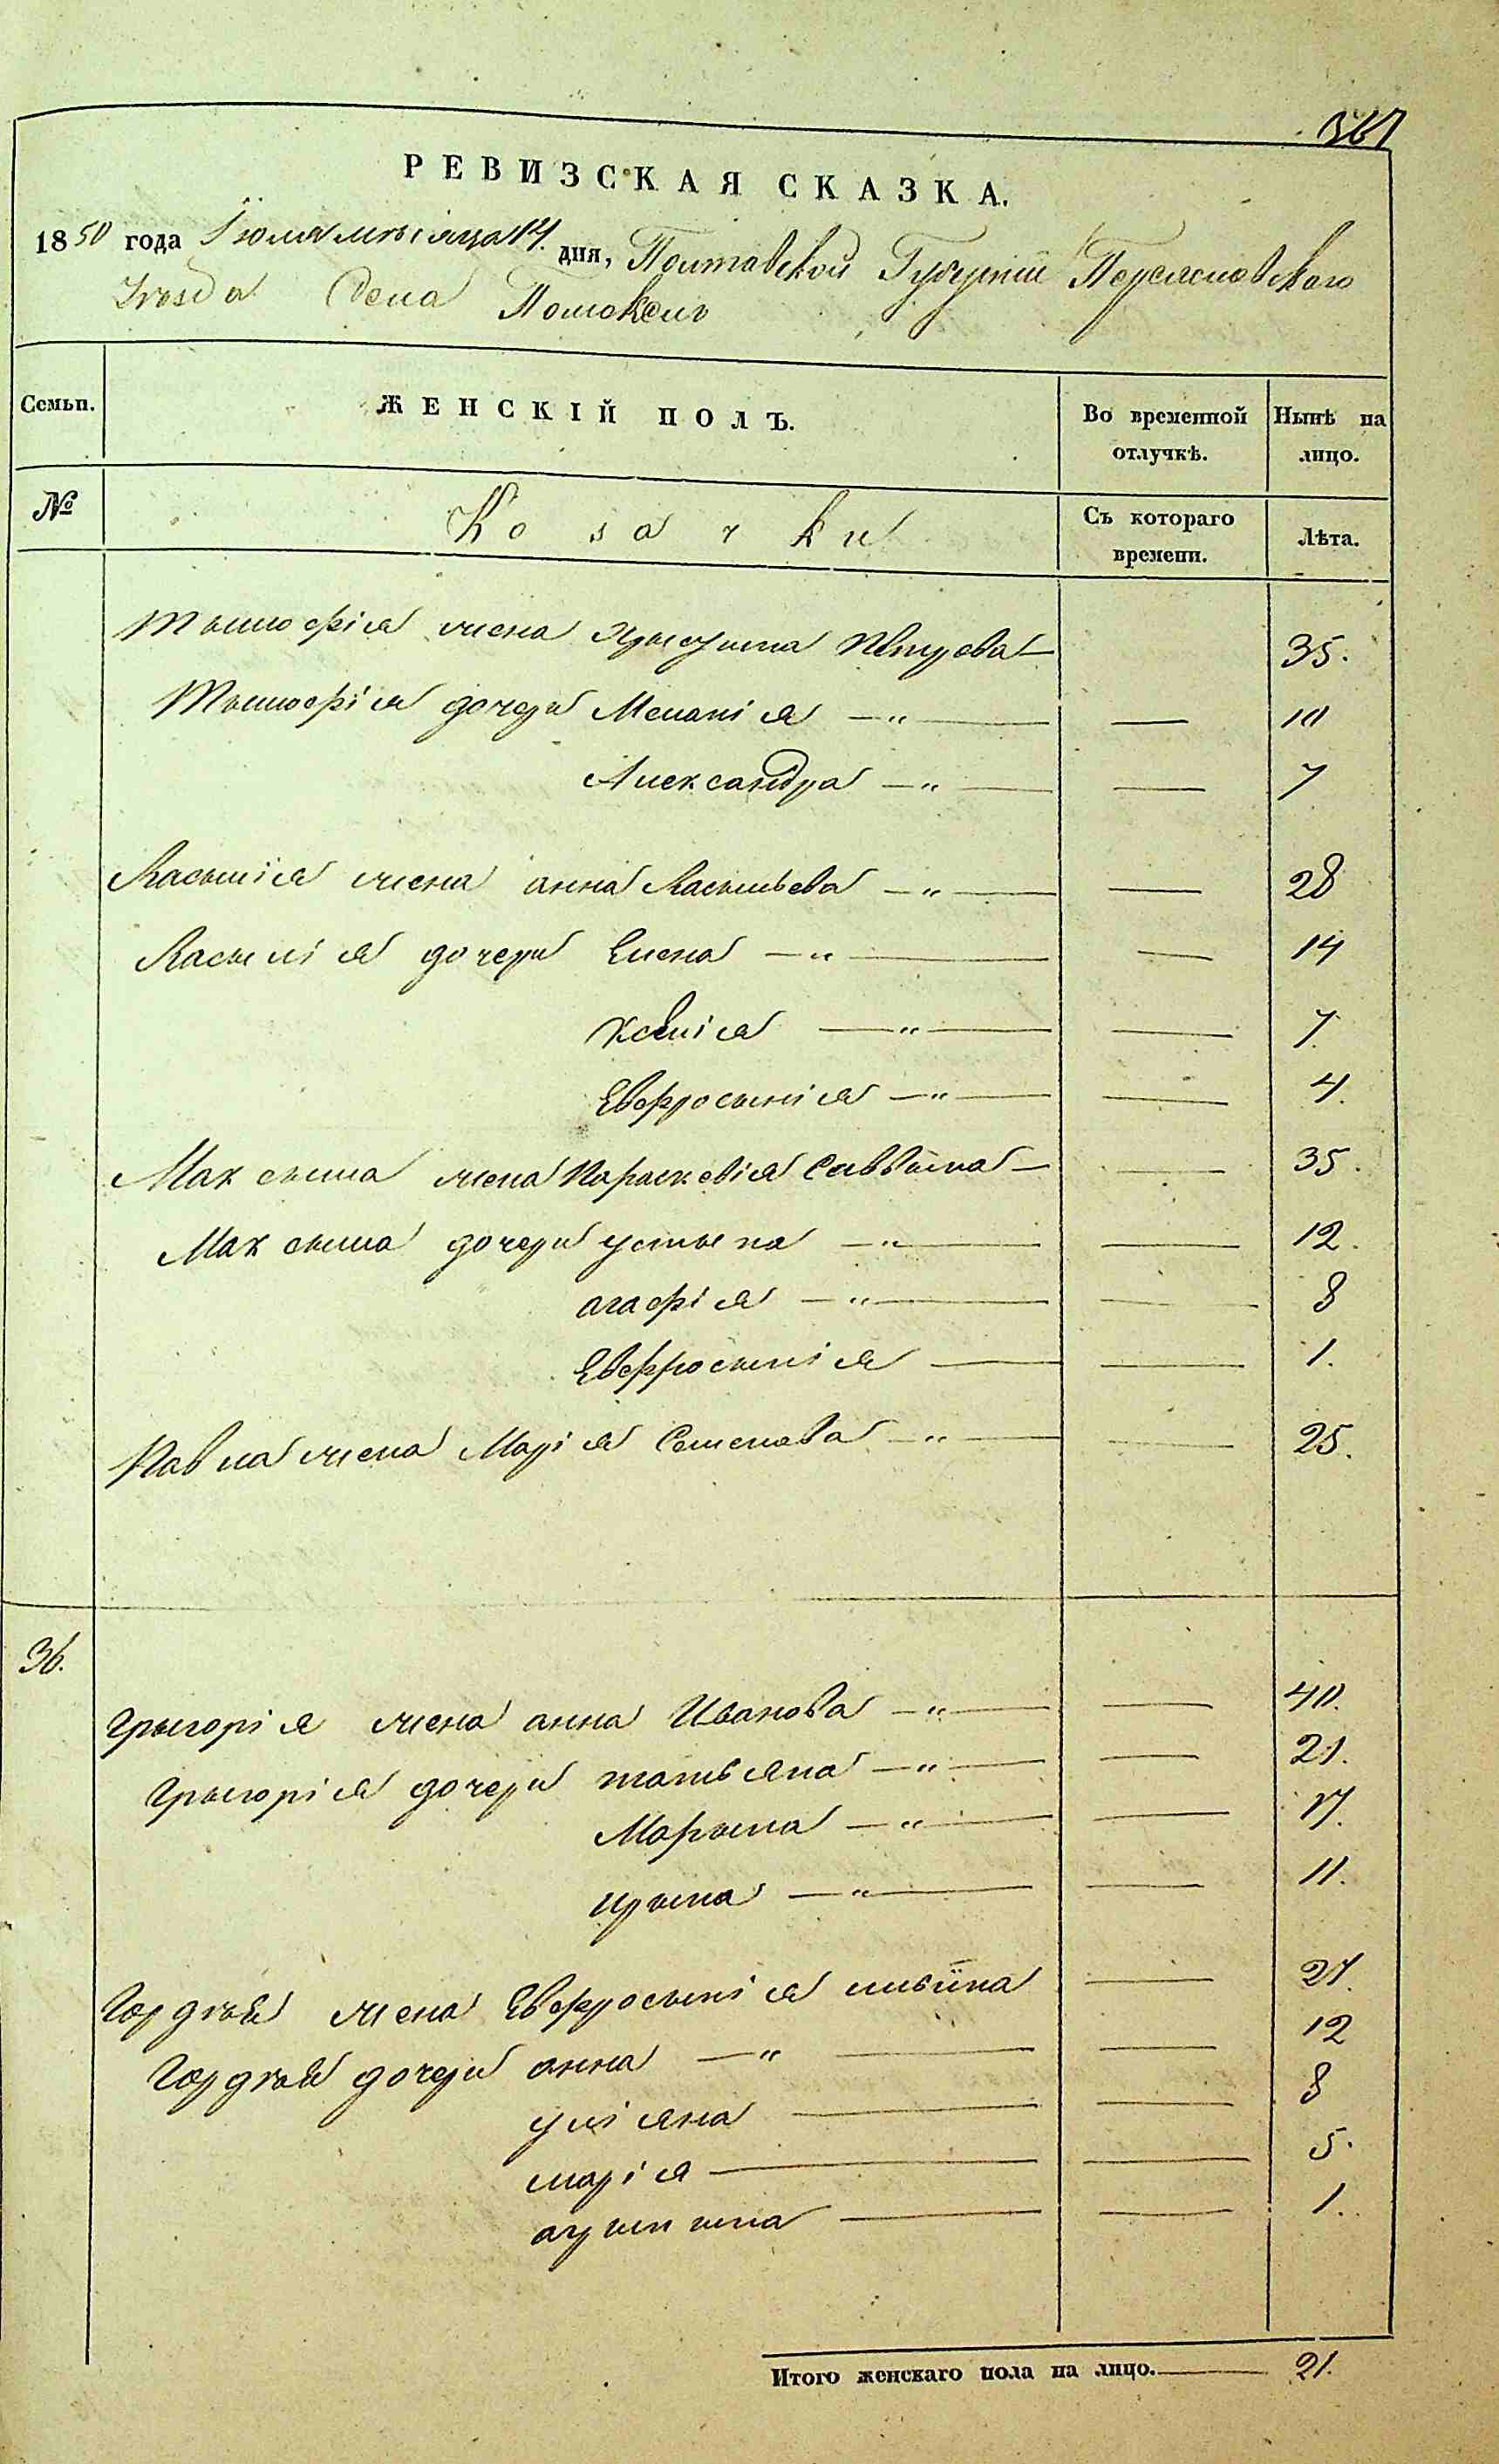 367
РЕВИЗСКАЯ СКАЗКА.
1850 года Іюля мѣсяца 14. дня, Полтавской Губерніи Переяславского
Уезда Села Помоклъ
Семьи. ЖЕНСКІЙ ПОЛЪ. Во временной отлучкѣ. Нынѣ на лицо.
№ Козачки Съ котораго времени. Лѣта.
Тымофія жена Хрыстина Петрова — 35.
Тымофія дочери Меланія — " — — 10
Александра — " — — 7
Васылія жена анна Васыльева — " — — 28
Васылія дочери Елена — " — — 14
Ксенія — " — — 7.
Евфросынія — " — — 4.
Максыма жена Параскевія Саввына — — 35.
Максыма дочери устына — " — — 12.
агафія — " — — 8
Евфросынія — — 1.
Павла жена Марія Семенова — " — — 25.
36.
Грыгорія жена анна Иванова — " — — 40.
Грыгорія дочери татьяна — " — — 21.
Марына — " — — 17.
ирына — " — — 11.
Гордѣя жена Евфросынія ильина — 27.
Гордѣя дочери анна — " — — 12
уліяна — — 8
марія — — 5.
— — 1.
Итого женскаго пола на лицо. — 21.